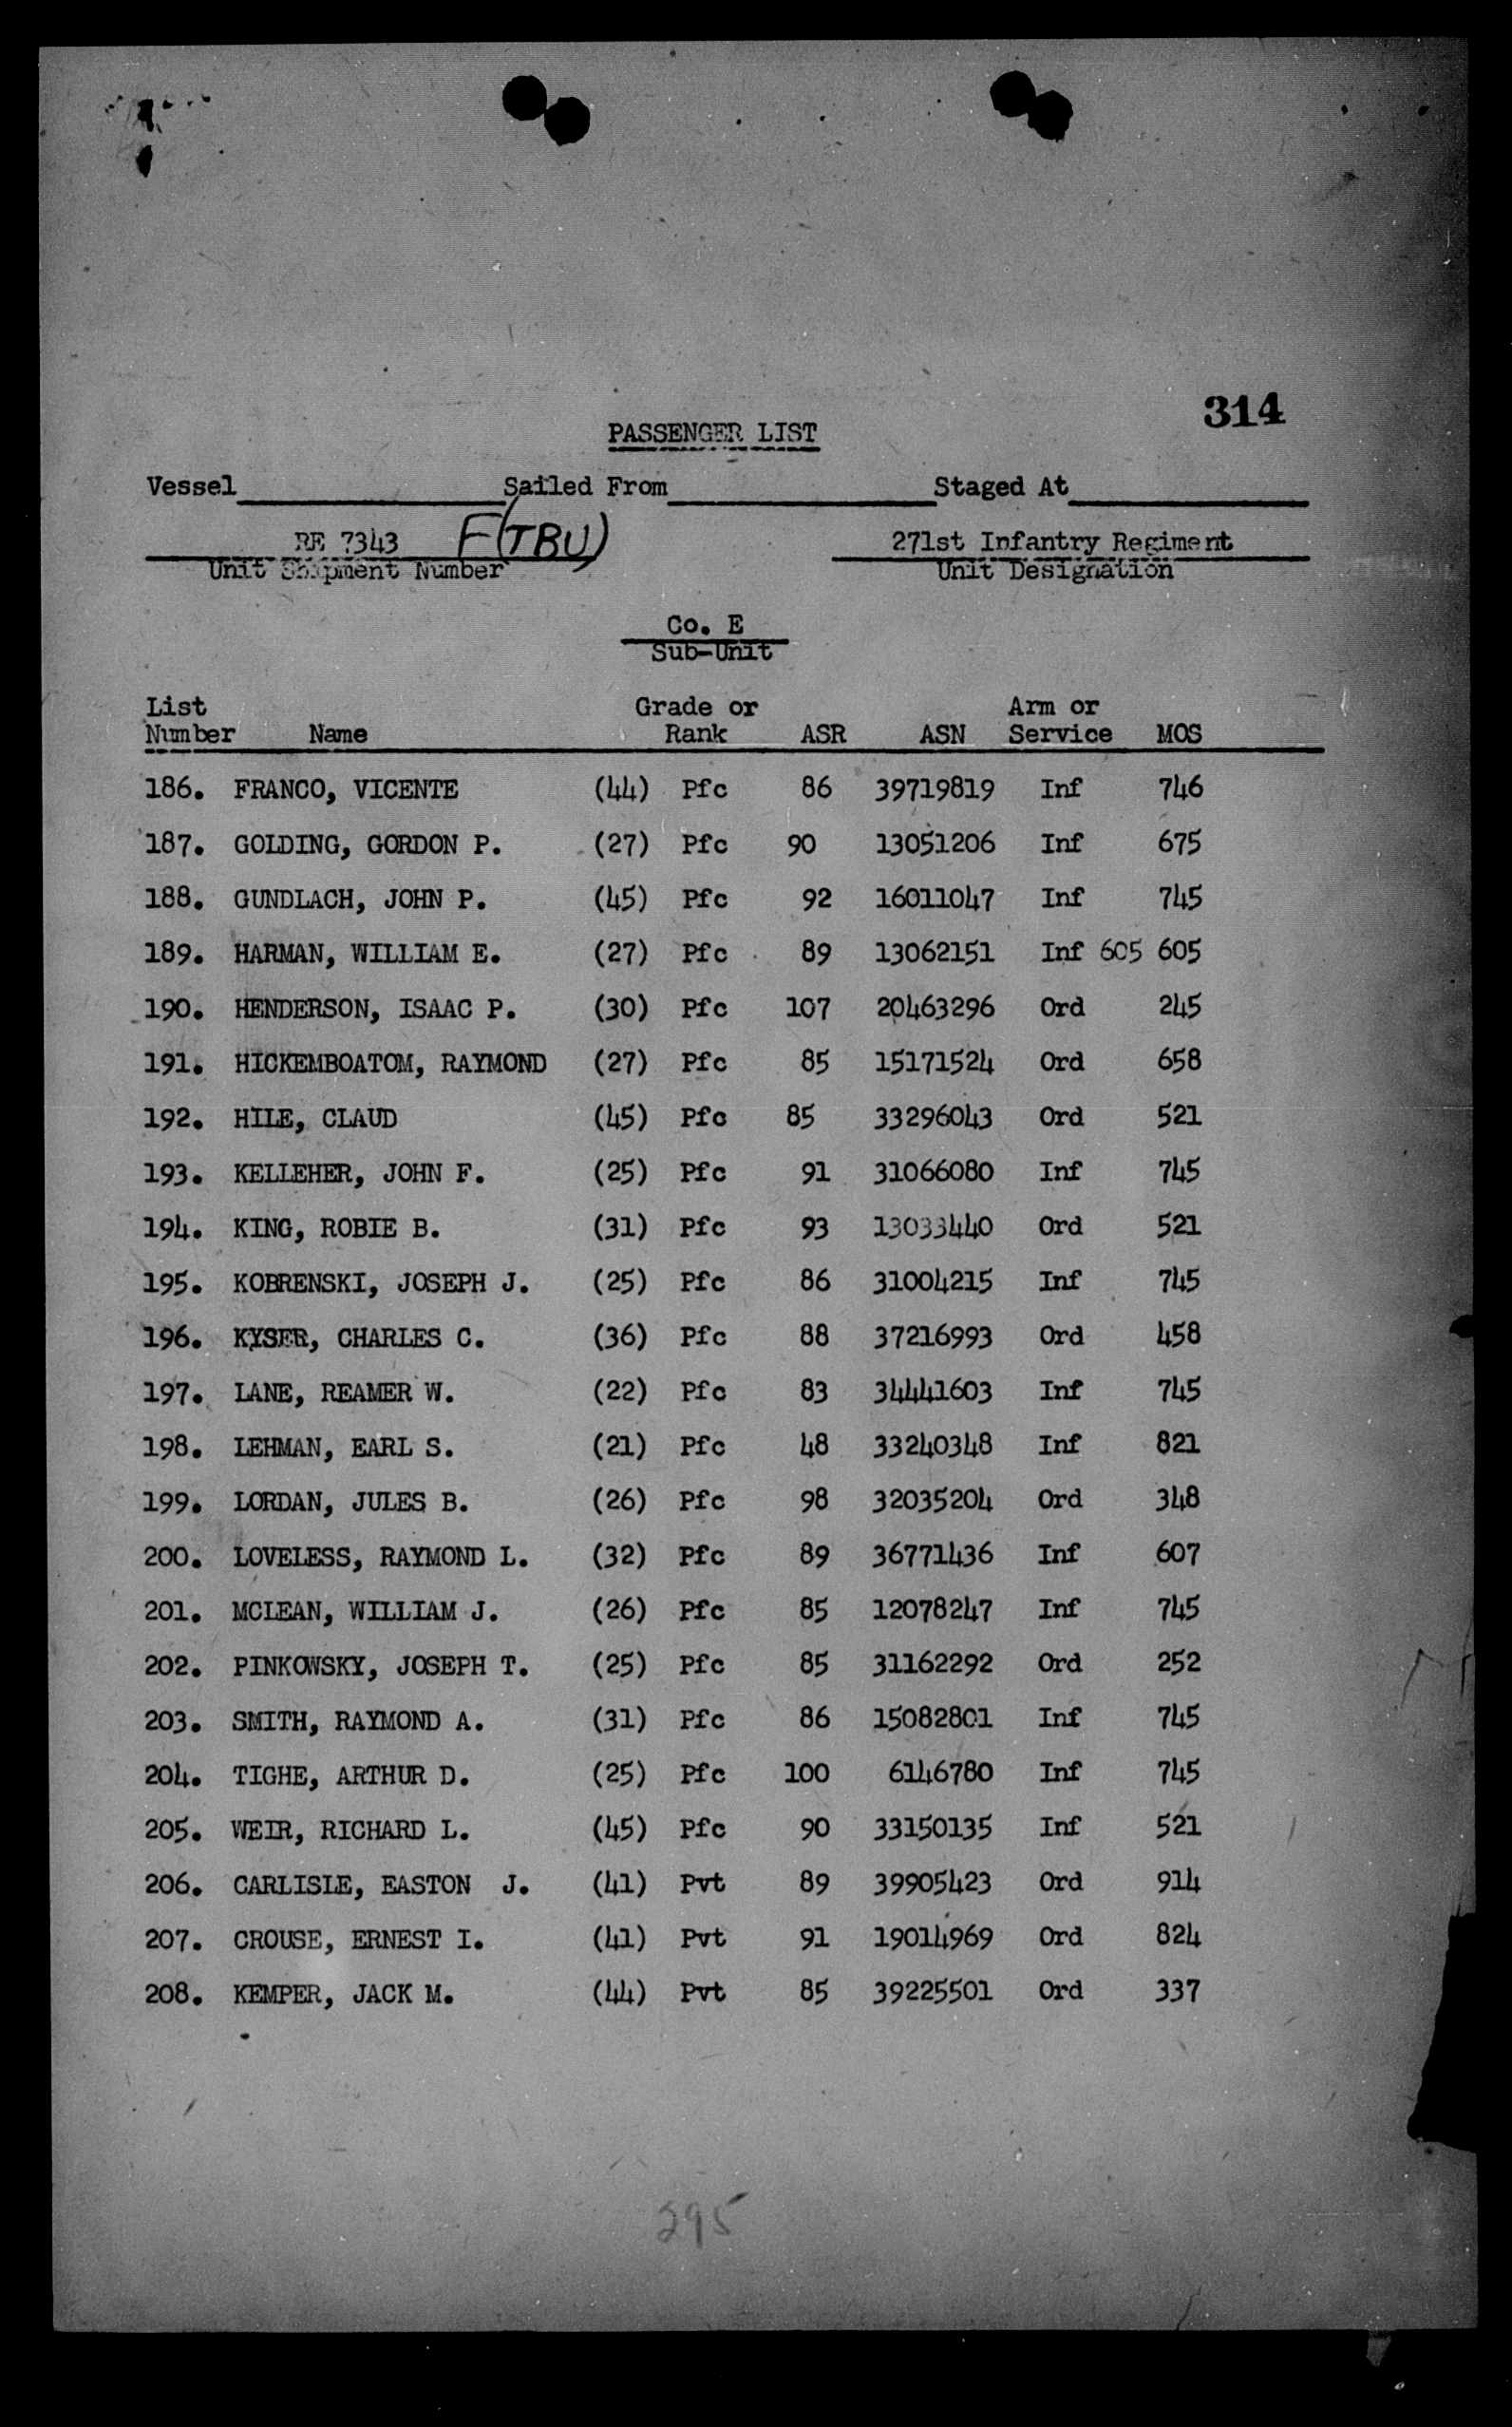 314
PASSENGER LIST
Vessel Sailed From Staged At
RE 7343 F(TBU) 271st Infantry Regiment
Unit Shipment Number Unit Designation
Co. E
Sub-Unit
List Grade or Arm or
Number Name Rank ASR ASN Service MOS
186. FRANCO, VICENTE (44) Pfc 86 39719819 Inf 746
187. GOLDING, GORDON P. (27) Pfc 90 13051206 Inf 675
188. GUNDLACH, JOHN P. (45) Pfc 92 16011047 Inf 745
189. HARMAN, WILLIAM E. (27) Pfc 89 13062151 Inf 605 605
190. HENDERSON, ISAAC P. (30) Pfc 107 20463296 Ord 245
191. HICKEMBOATOM, RAYMOND (27) Pfc 85 15171524 Ord 658
192. HILE, CLAUD (45) Pfc 85 33296043 Ord 521
193. KELLEHER, JOHN F. (25) Pfc 91 31066080 Inf 745
194. KING, ROBIE B. (31) Pfc 93 13033440 Ord 521
195. KOBRENSKI, JOSEPH J. (25) Pfc 86 31004215 Inf 745
196. KYSER, CHARLES C. (36) Pfc 88 37216993 Ord 458
197. LANE, REAMER W. (22) Pfc 83 34441603 Inf 745
198. LEHMAN, EARL S. (21) Pfc 48 33240348 Inf 821
199. LORDAN, JULES B. (26) Pfc 98 32035204 Ord 348
200. LOVELESS, RAYMOND L. (32) Pfc 89 36771436 Inf 607
201. MCLEAN, WILLIAM J. (26) Pfc 85 12078247 Inf 745
202. PINKOWSKY, JOSEPH T. (25) Pfc 85 31162292 Ord 252
203. SMITH, RAYMOND A. (31) Pfc 86 15082801 Inf 745
204. TIGHE, ARTHUR D. (25) Pfc 100 6146780 Inf 745
205. WEIR, RICHARD L. (45) Pfc 90 33150135 Inf 521
206. CARLISLE, EASTON J. (41) Pvt 89 39905423 Ord 914
207. CROUSE, ERNEST I. (41) Pvt 91 19014969 Ord 824
208. KEMPER, JACK M. (44) Pvt 85 39225501 Ord 337
295